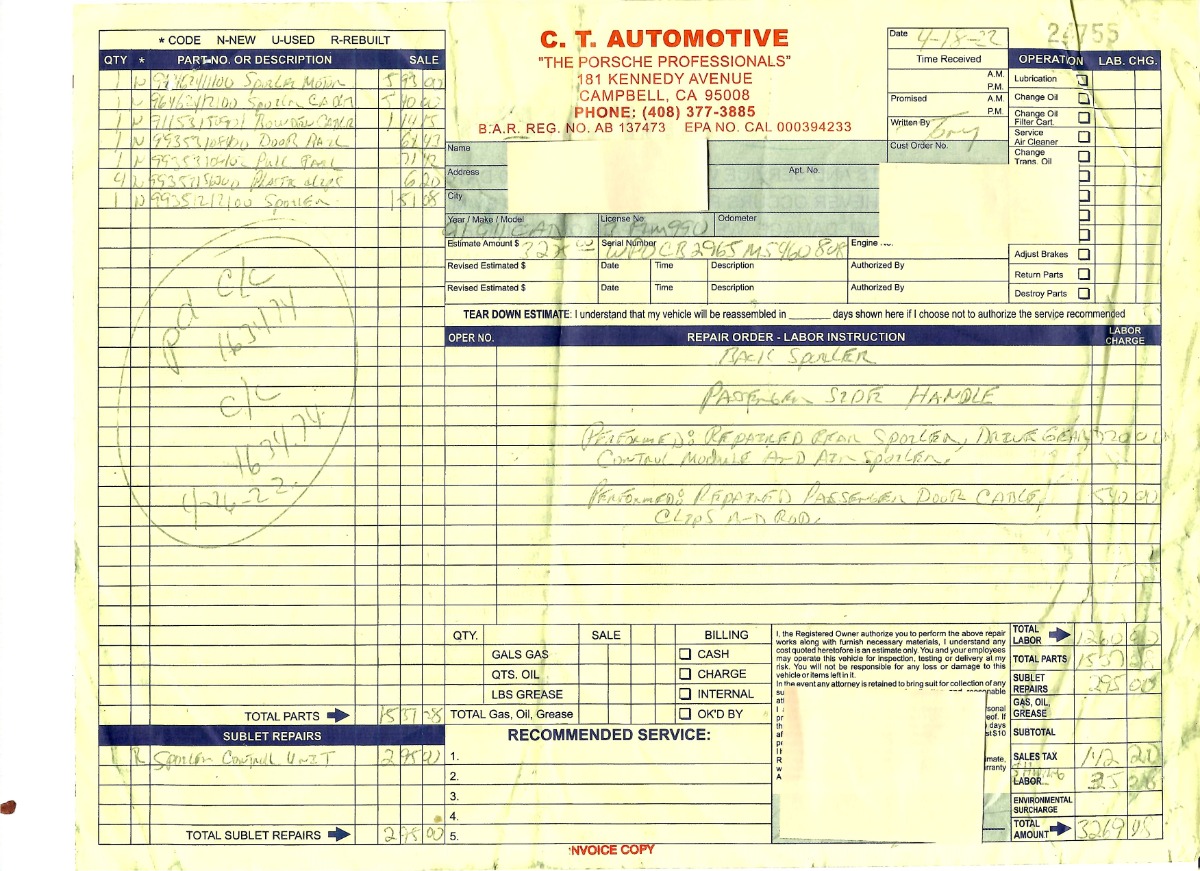 * CODE N-NEW U-USED R-REBUILT
QTY * PART NO. OR DESCRIPTION SALE
1 N Spoiler Motor 593 00
1 N Spoiler Cable 540 00
1 N Bowden Cable 114 15
1 N Door
1 N Pull
4 N Plastic Clips 6 20
1 N Spoiler 151 08
pd C/C
163474
C/C
163474
4-26-22
TOTAL PARTS
SUBLET REPAIRS
1 R Spoiler Control Unit 295 00
TOTAL SUBLET REPAIRS 295 00
C. T. AUTOMOTIVE
"THE PORSCHE PROFESSIONALS"
181 KENNEDY AVENUE
CAMPBELL, CA 95008
PHONE: (408) 377-3885
B.A.R. REG. NO. AB 137473 EPA NO. CAL 000394233
Date 4-18-22
24755
Time Received
A.M.
P.M.
Promised A.M.
P.M.
Written By Tony
Cust Order No.
Name
Address Apt. No.
City
Year / Make / Model License No. Odometer
Estimate Amount $ Serial Number WP0CB2965MS460808 Engine
Revised Estimated $ Date Time Description Authorized By
Revised Estimated $ Date Time Description Authorized By
OPERATION LAB. CHG.
Lubrication
Change Oil
Change Oil
Filter Cart.
Service
Air Cleaner
Change
Trans. Oil
Adjust Brakes
Return Parts
Destroy Parts
TEAR DOWN ESTIMATE: I understand that my vehicle will be reassembled in ________ days shown here if I choose not to authorize the service recommended
OPER NO. REPAIR ORDER - LABOR INSTRUCTION LABOR
CHARGE
Back Spoiler
Passenger Side Handle
Performed: Repaired Rear Spoiler, Drive Gear, 720 00
Control Module And Air Spoiler.
Performed: Repaired Passenger Door Cable, 540 00
Clips And Rod.
QTY. SALE BILLING
GALS GAS CASH
QTS. OIL CHARGE
LBS GREASE INTERNAL
TOTAL Gas, Oil, Grease OK'D BY
RECOMMENDED SERVICE:
1.
2.
3.
4.
5.
I, the Registered Owner authorize you to perform the above repair
works along with furnish necessary materials, I understand any
cost quoted heretofore is an estimate only. You and your employees
may operate this vehicle for inspection, testing or delivery at my
risk. You will not be responsible for any loss or damage to this
vehicle or items left in it.
In the event any attorney is retained to bring suit for collection of any
TOTAL
LABOR 1260 00
TOTAL PARTS
SUBLET
REPAIRS 295 00
GAS, OIL,
GREASE
SUBTOTAL
SALES TAX 142 20
LABOR
ENVIRONMENTAL
SURCHARGE
TOTAL
AMOUNT 3269
INVOICE COPY